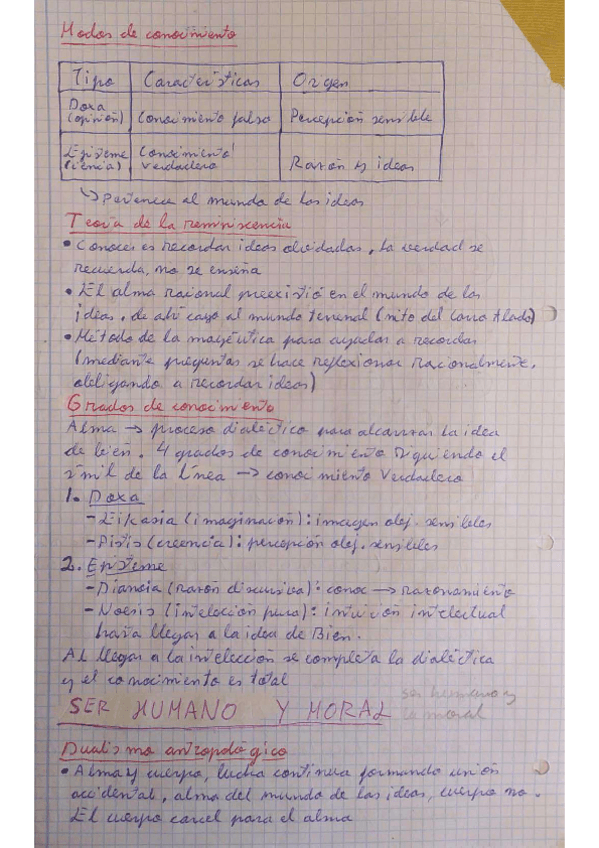 Modos de conocimiento
Tipo Características Origen
Doxa (opinión) Conocimiento falso Percepción sensible
Episteme (ciencia) Conocimiento verdadero Razón y ideas
↳ Pertenece al mundo de las ideas
Teoría de la reminiscencia
• Conocer es recordar ideas olvidadas, la verdad se
recuerda, no se enseña
• El alma racional preexistió en el mundo de las
ideas, de ahí cayó al mundo terrenal (mito del Carro Alado)
• Método de la mayéutica para ayudar a recordar
(mediante preguntas se hace reflexionar racionalmente,
obligando a recordar ideas)
Grados de conocimiento
Alma → proceso dialéctico para alcanzar la idea
de bien. 4 grados de conocimiento siguiendo el
símil de la Línea → conocimiento Verdadero
1. Doxa
- Eikasia (imaginación): imagen obj. sensibles
- Pistis (creencia): percepción obj. sensibles
2. Episteme
- Dianoia (razón discursiva): conoc → razonamiento
- Noesis (intelección pura): intuición intelectual
hasta llegar a la idea de Bien.
Al llegar a la intelección se completa la dialéctica
y el conocimiento es total
SER HUMANO Y MORAL
ser humano y
la moral
Dualismo antropológico
• Alma y cuerpo, lucha continua formando unión
accidental, alma del mundo de las ideas, cuerpo no.
El cuerpo carcel para el alma